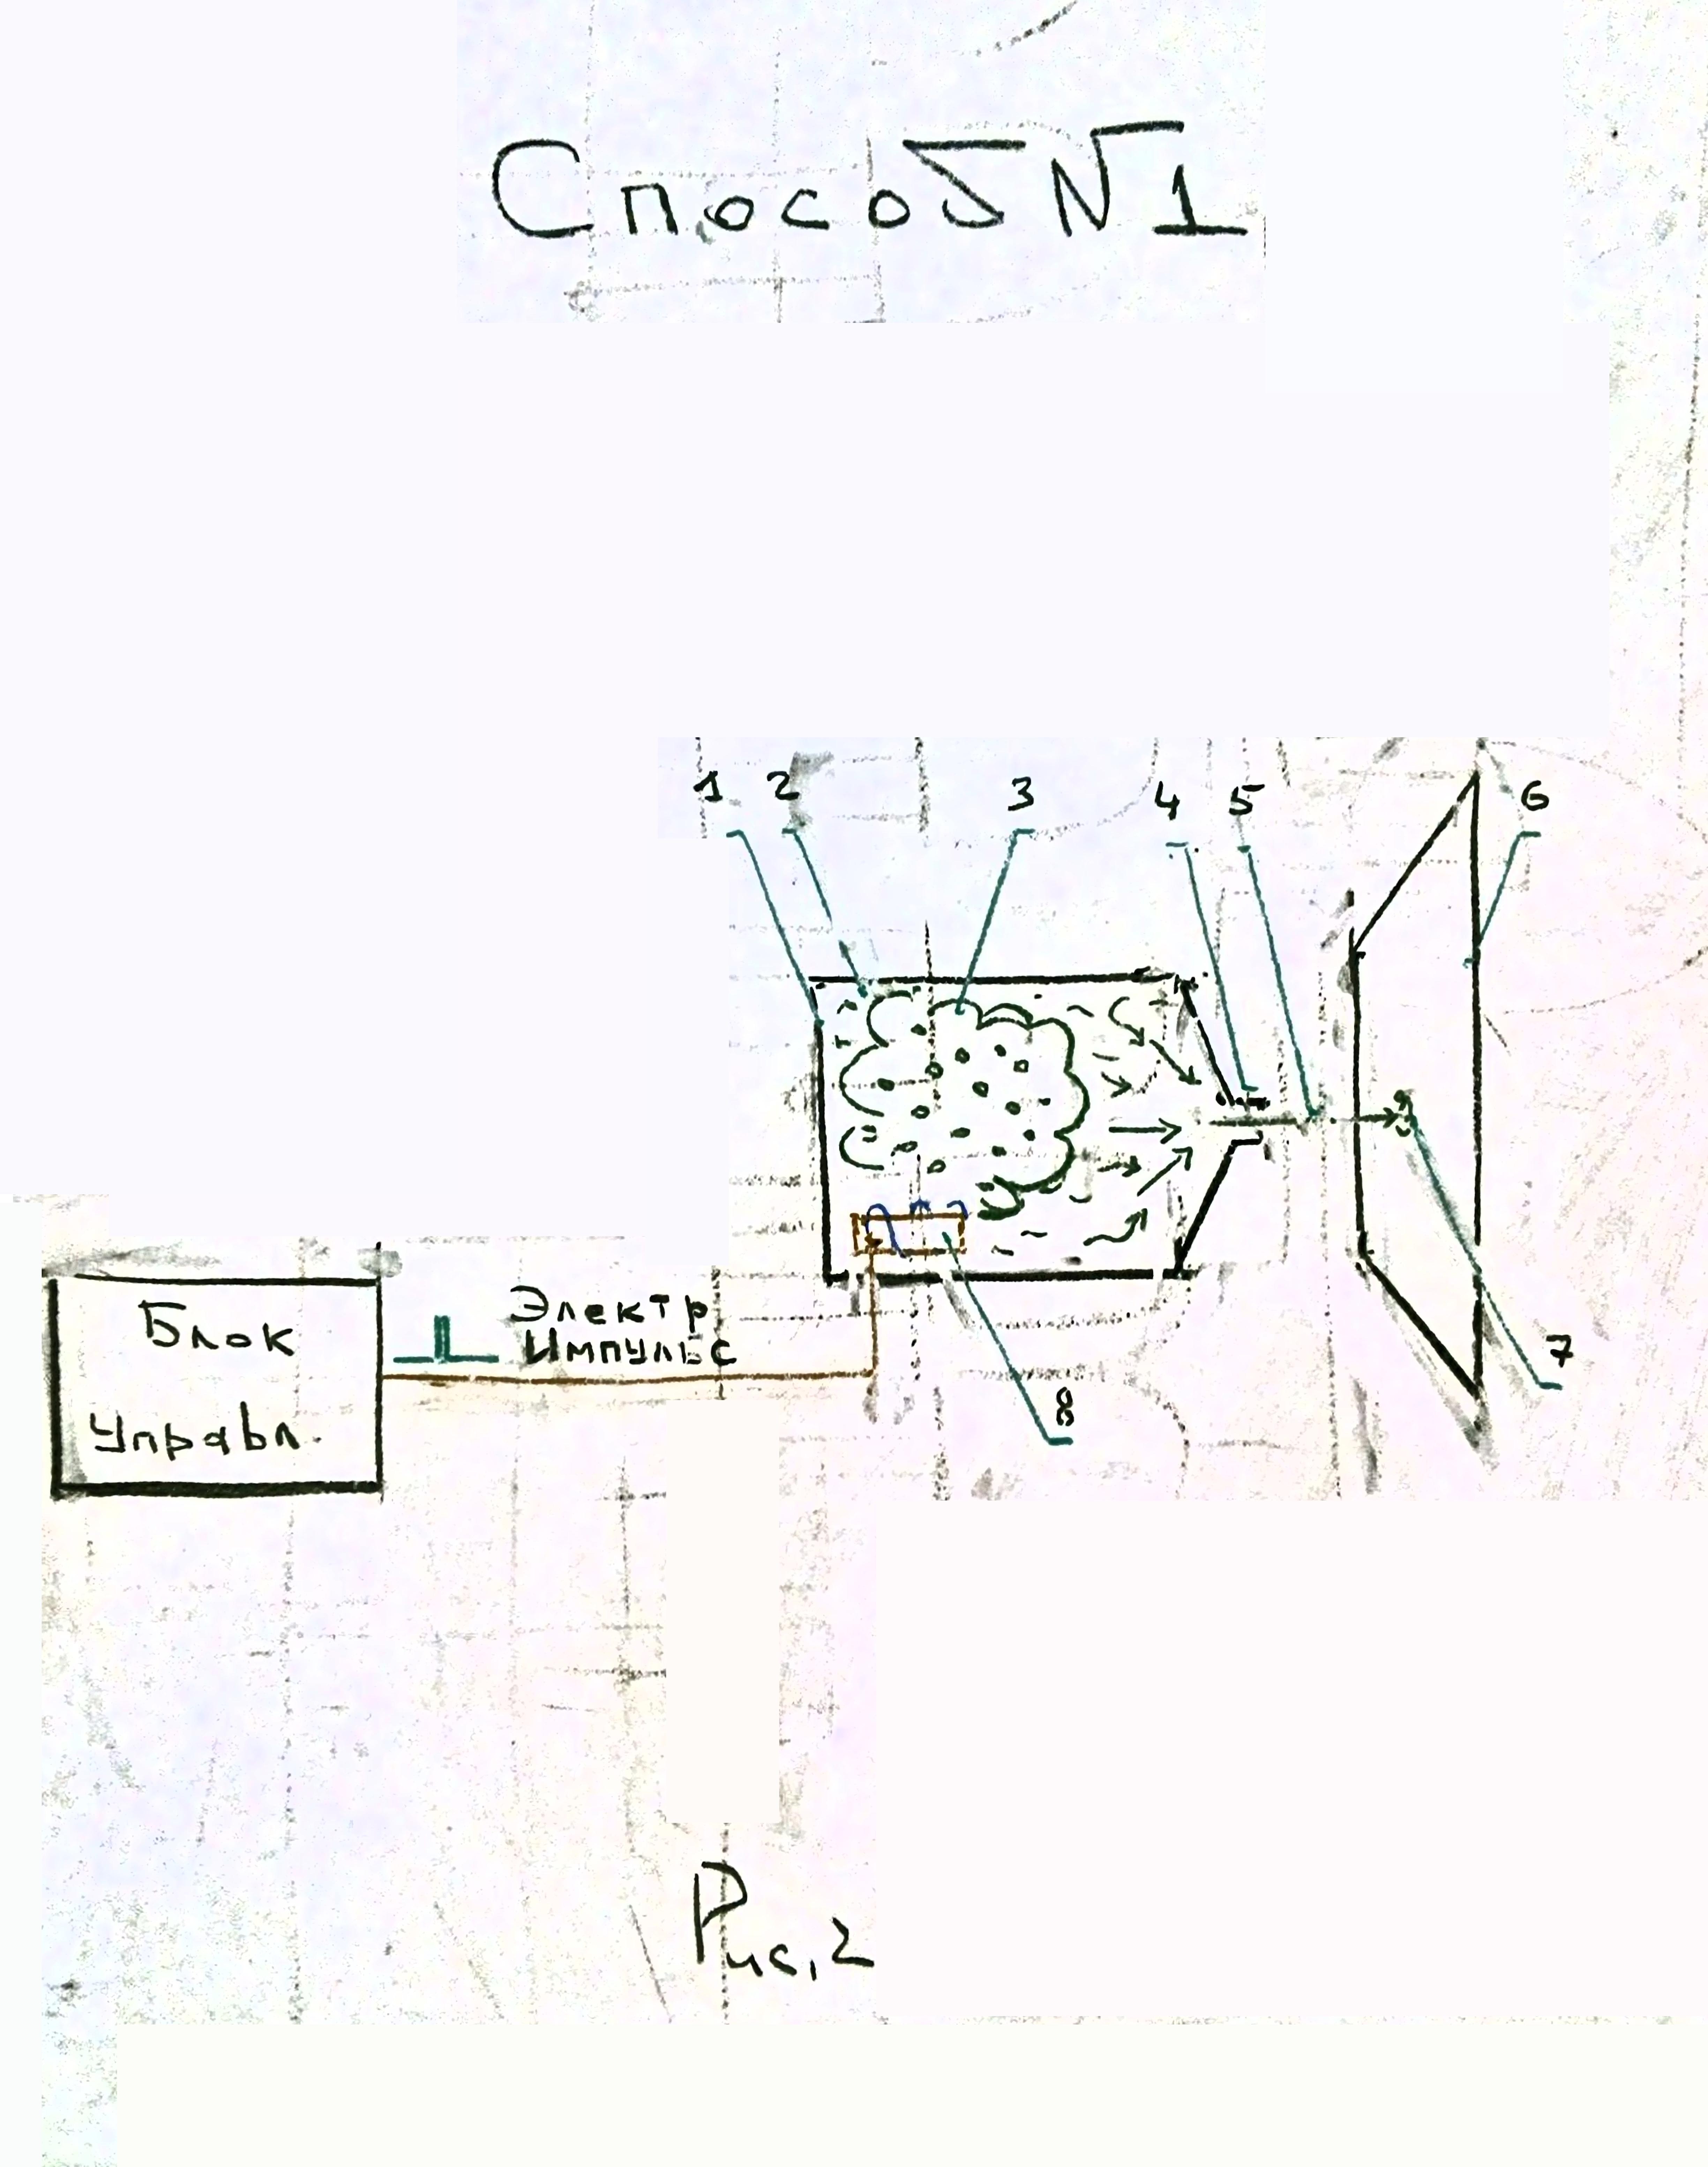 Способ №1
1 2 3 4 5 6
Блок
Управл.
Электр
Импульс
7
8
Рис. 2